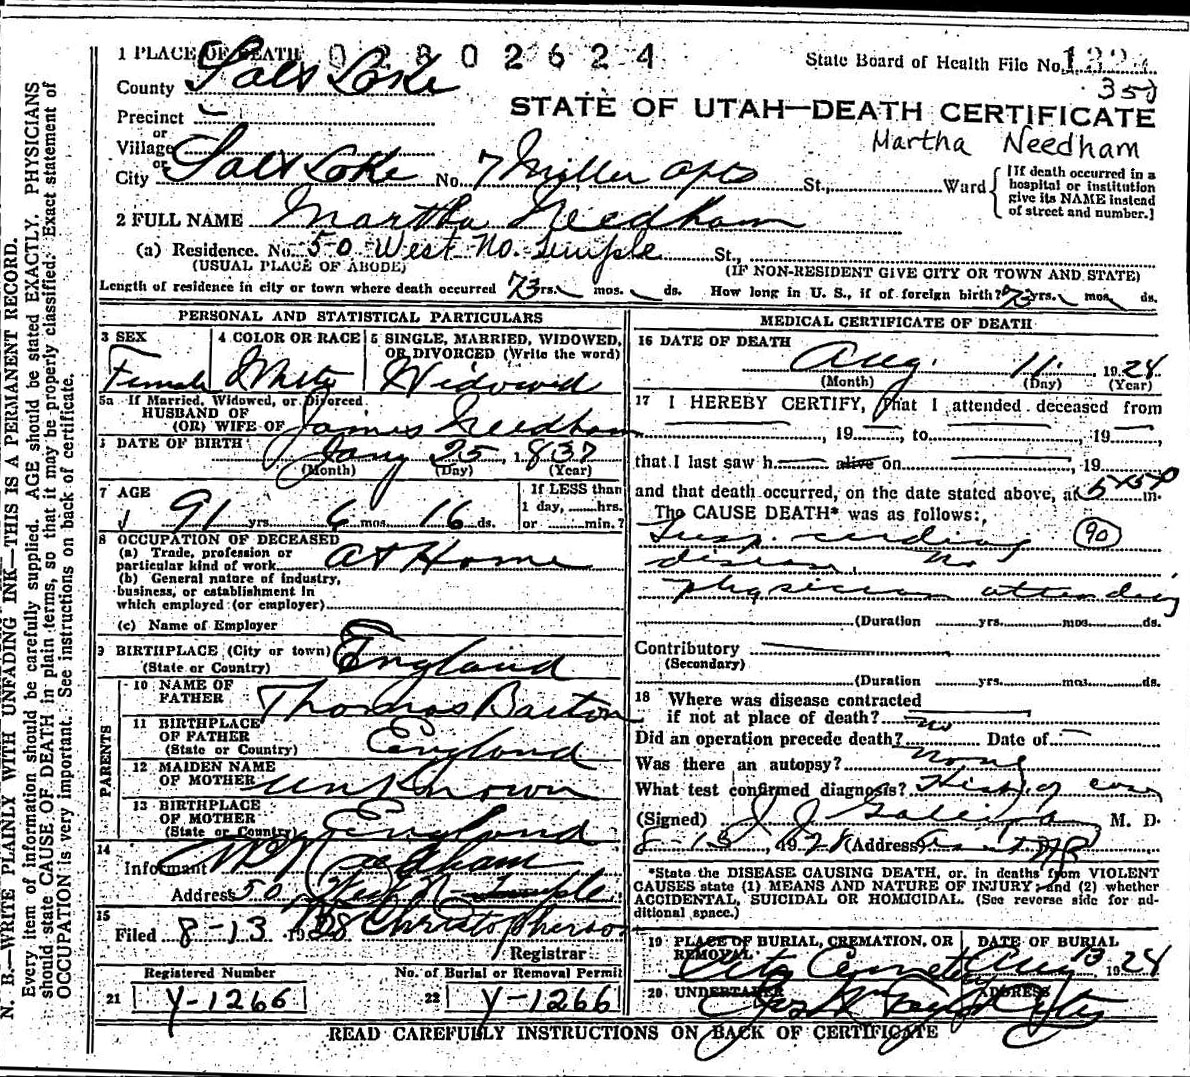 1 PLACE OF DEATH 02802624 State Board of Health File No.
County Salt Lake 350
STATE OF UTAH—DEATH CERTIFICATE
Precinct
or
Village
or
Martha Needham
City Salt Lake No. 7 Miller Apts St., Ward
{If death occurred in a
hospital or institution
give its NAME instead
of street and number.]
2 FULL NAME Martha Needham
(a) Residence. No. 50 West No. Temple St.,
(USUAL PLACE OF ABODE) (IF NON-RESIDENT GIVE CITY OR TOWN AND STATE)
Length of residence in city or town where death occurred 73 yrs. mos. ds. How long in U. S., if of foreign birth? 73 yrs. mos. ds.
PERSONAL AND STATISTICAL PARTICULARS
3 SEX 4 COLOR OR RACE 5 SINGLE, MARRIED, WIDOWED,
OR DIVORCED (Write the word)
Female White Widowed
5a If Married, Widowed, or Divorced
HUSBAND OF
(OR) WIFE OF James Needham
DATE OF BIRTH Jany 25, 1837
(Month) (Day) (Year)
7 AGE If LESS than
1 day, hrs.
91 yrs. 6 mos. 16 ds. or min.?
8 OCCUPATION OF DECEASED
(a) Trade, profession or
particular kind of work At Home
(b) General nature of industry,
business, or establishment in
which employed (or employer)
(c) Name of Employer
9 BIRTHPLACE (City or town)
(State or Country) England
PARENTS
10 NAME OF
FATHER Thomas Barton
11 BIRTHPLACE
OF FATHER England
(State or Country)
12 MAIDEN NAME
OF MOTHER unknown
13 BIRTHPLACE
OF MOTHER England
(State or Country)
14
Informant Needham
Address 50 West N Temple
15
Filed 8-13 1928 Christopherson
Registrar
Registered Number No. of Burial or Removal Permit
21 Y-1266 22 Y-1266
MEDICAL CERTIFICATE OF DEATH
16 DATE OF DEATH
Aug. 11, 1928
(Month) (Day) (Year)
17 I HEREBY CERTIFY, That I attended deceased from
, 19 , to , 19 ,
that I last saw h alive on , 19
and that death occurred, on the date stated above, at m.
The CAUSE DEATH* was as follows:
90
disease, No
physician attending
(Duration yrs. mos. ds.
Contributory
(Secondary)
(Duration yrs. mos. ds.
18 Where was disease contracted
if not at place of death? no
Did an operation precede death? Date of
Was there an autopsy? None
What test confirmed diagnosis? Hist. of case
(Signed) J J Galligan M. D.
8-13, 1928 (Address)
*State the DISEASE CAUSING DEATH, or, in deaths from VIOLENT
CAUSES state (1) MEANS AND NATURE OF INJURY; and (2) whether
ACCIDENTAL, SUICIDAL OR HOMICIDAL. (See reverse side for ad-
ditional space.)
19 PLACE OF BURIAL, CREMATION, OR DATE OF BURIAL
REMOVAL
City Cemetery Aug 13 1928
20 UNDERTAKER ADDRESS
City
READ CAREFULLY INSTRUCTIONS ON BACK OF CERTIFICATE
N. B.—WRITE PLAINLY WITH UNFADING INK—THIS IS A PERMANENT RECORD.
Every item of information should be carefully supplied. AGE should be stated EXACTLY. PHYSICIANS
should state CAUSE OF DEATH in plain terms, so that it may be properly classified. Exact statement of
OCCUPATION is very important. See instructions on back of certificate.